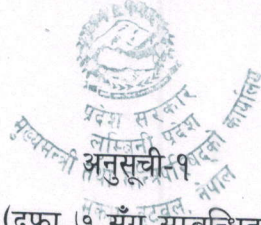 प्रदेश सरकार
लुम्बिनी प्रदेश
मुख्यमन्त्री परिषदको कार्यालय
बुटवल, नेपाल
अनुसूची-१
(दफा ७ सँग सम्बन्धित